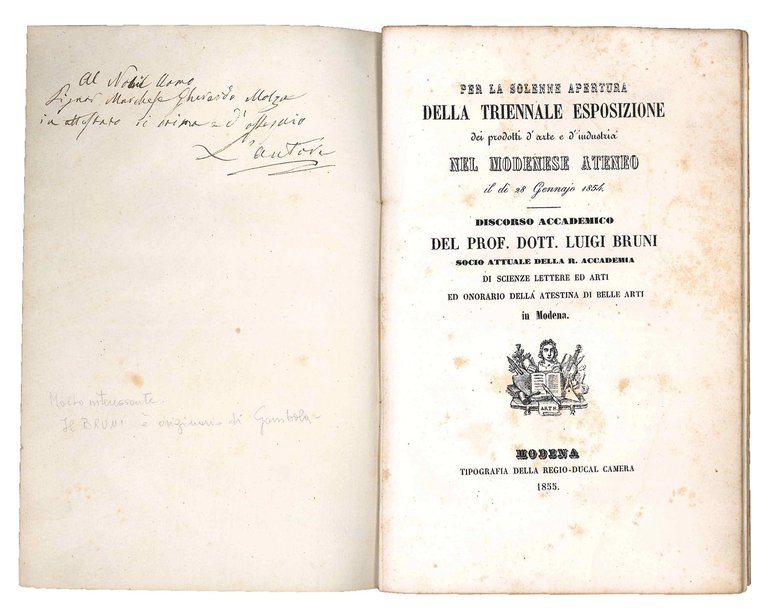 Al Nobil Uomo
Signor Marchese Gherardo Molza
in attestato di stima e d'ossequio
L'autore
Molto interessante.
Il BRUNI è originario di Gombola
PER LA SOLENNE APERTURA
DELLA TRIENNALE ESPOSIZIONE
dei prodotti d'arte e d'industria
NEL MODENESE ATENEO
il dì 28 Gennajo 1854.
DISCORSO ACCADEMICO
DEL PROF. DOTT. LUIGI BRUNI
SOCIO ATTUALE DELLA R. ACCADEMIA
DI SCIENZE LETTERE ED ARTI
ED ONORARIO DELLA ATESTINA DI BELLE ARTI
in Modena.
ARTE
MODENA
TIPOGRAFIA DELLA REGIO-DUCAL CAMERA
1855.